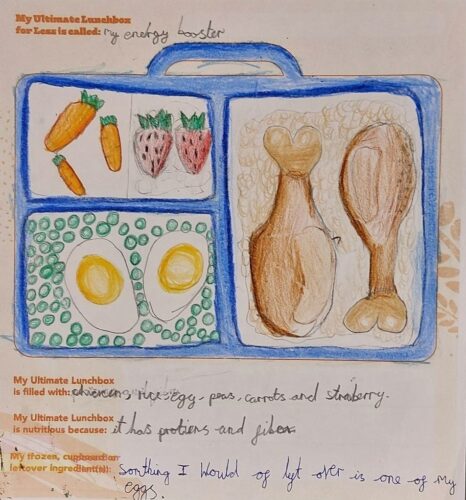 My Ultimate Lunchbox
for Less is called: my energy booster
My Ultimate Lunchbox
is filled with: chickens rice, egg, peas, carrots and straberry.
My Ultimate Lunchbox
is nutritious because: it has protiens and fiber.
My frozen, cupboard or
leftover ingredient(s): Somthing I Would of left over is one of my
eggs.